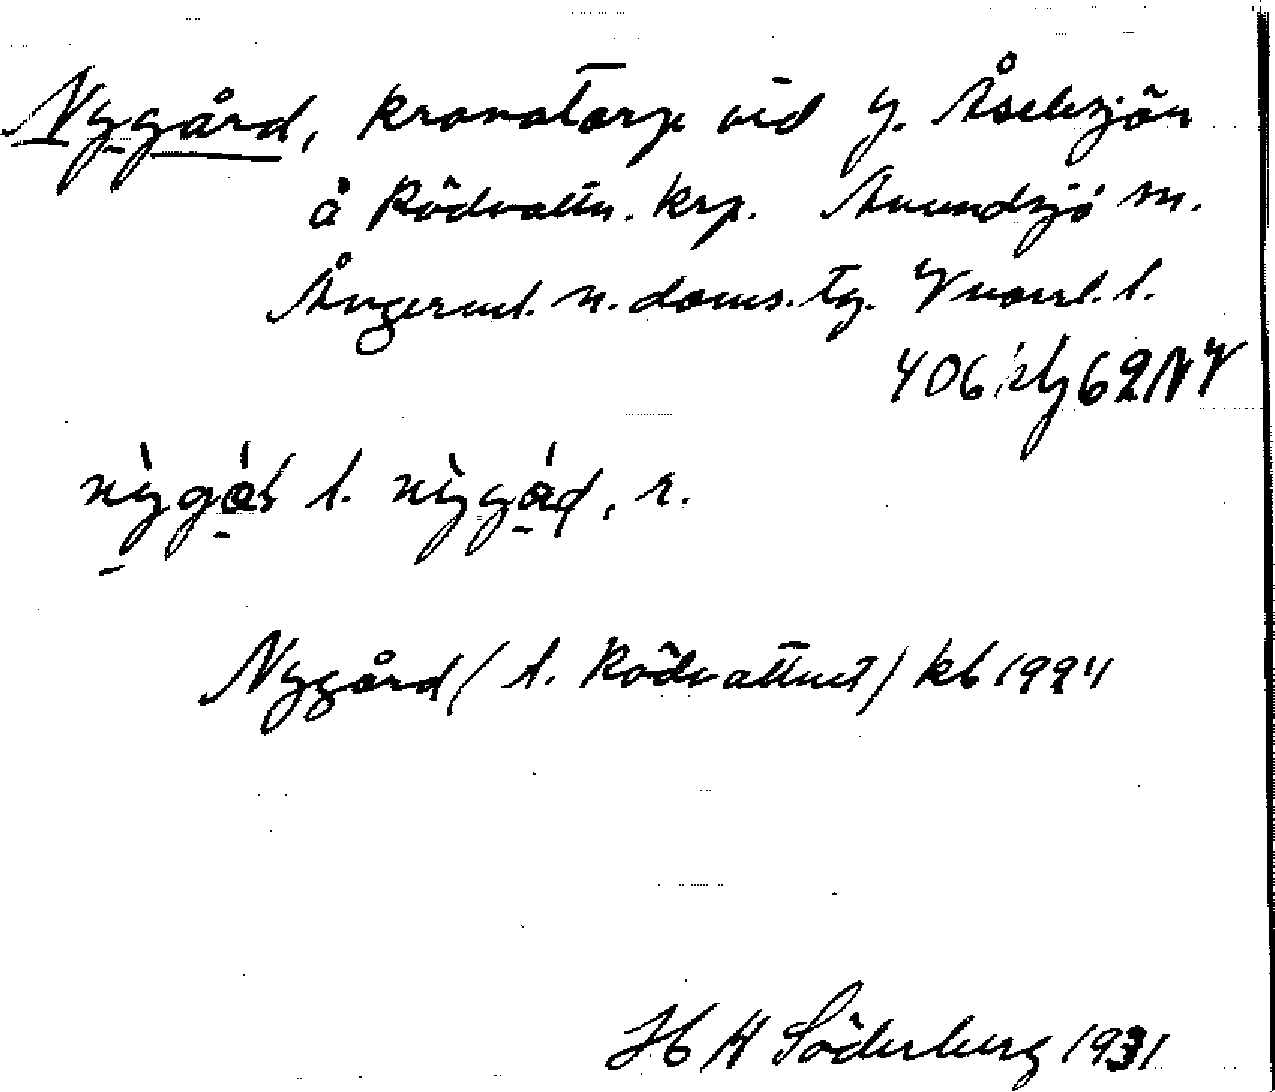 Nygård, kronotorp vid y. Åselesjön
å Rödvattn. krp. Anundsjö sn.
Ångerml. n. doms. tg. Vnorrl. l.
62NV
l. , s.
Nygård (l. Rödvattnet) kb 1924
H Söderberg 1931